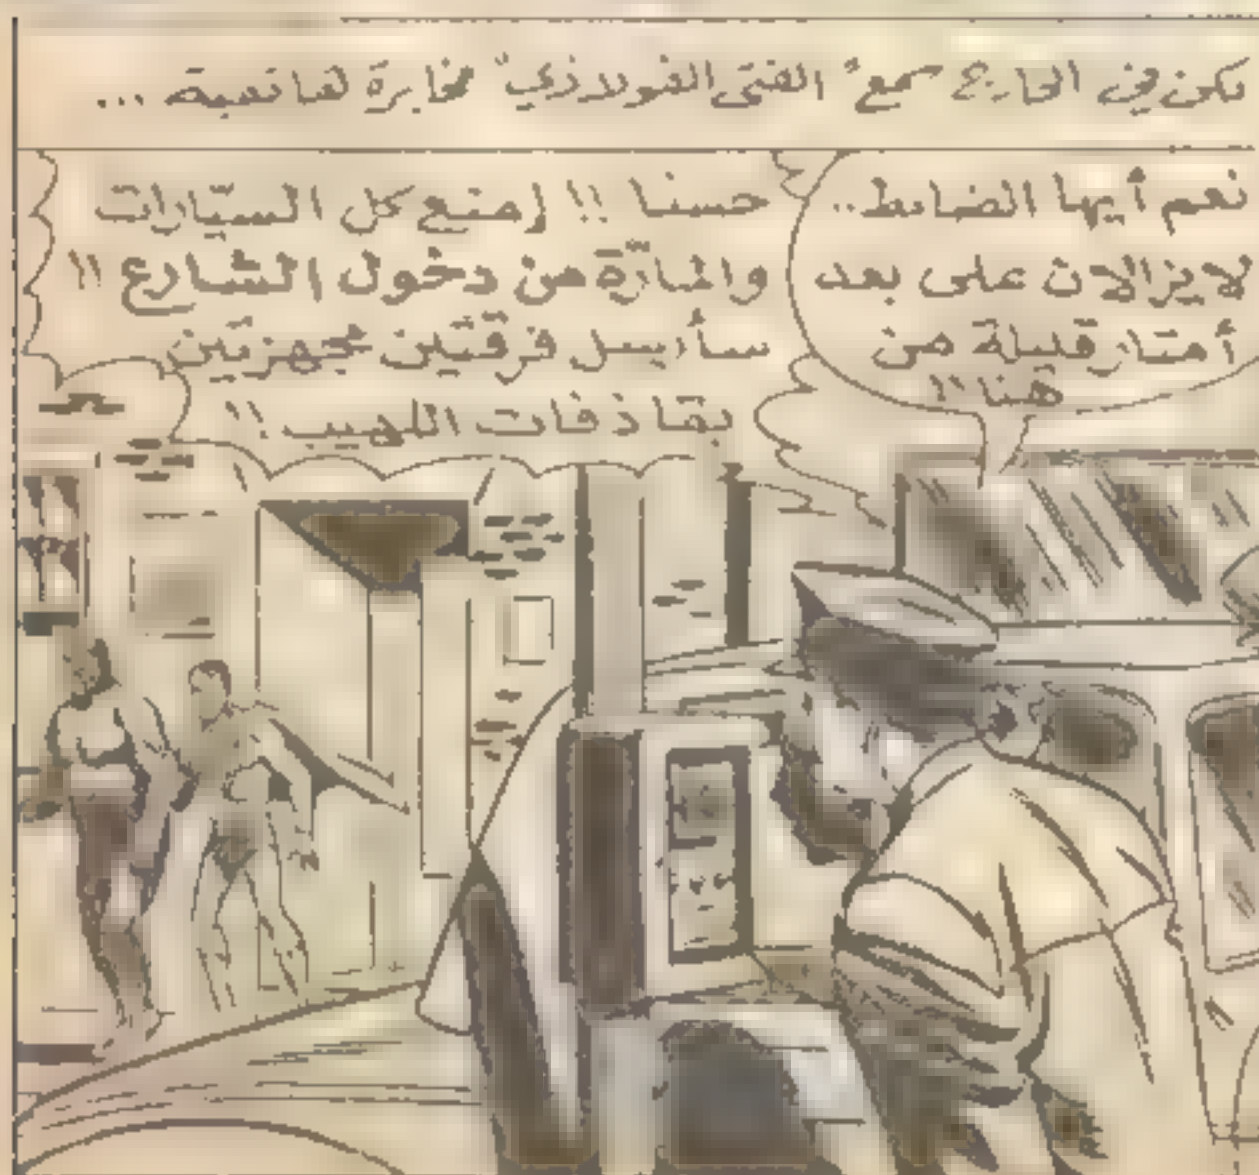 لكن في الخارج سمع "الفتى الفولاذي" مخابرة لها تهمه ...
نعم أيها الضابط..
لايزالان على بعد
أمتار قليلة من
هنا !!
حسنا !! إمنع كل السيّارات
والمارّة من دخول الشارع !!
سأرسل فرقتين مجهزتين
بقاذفات اللهيب !!